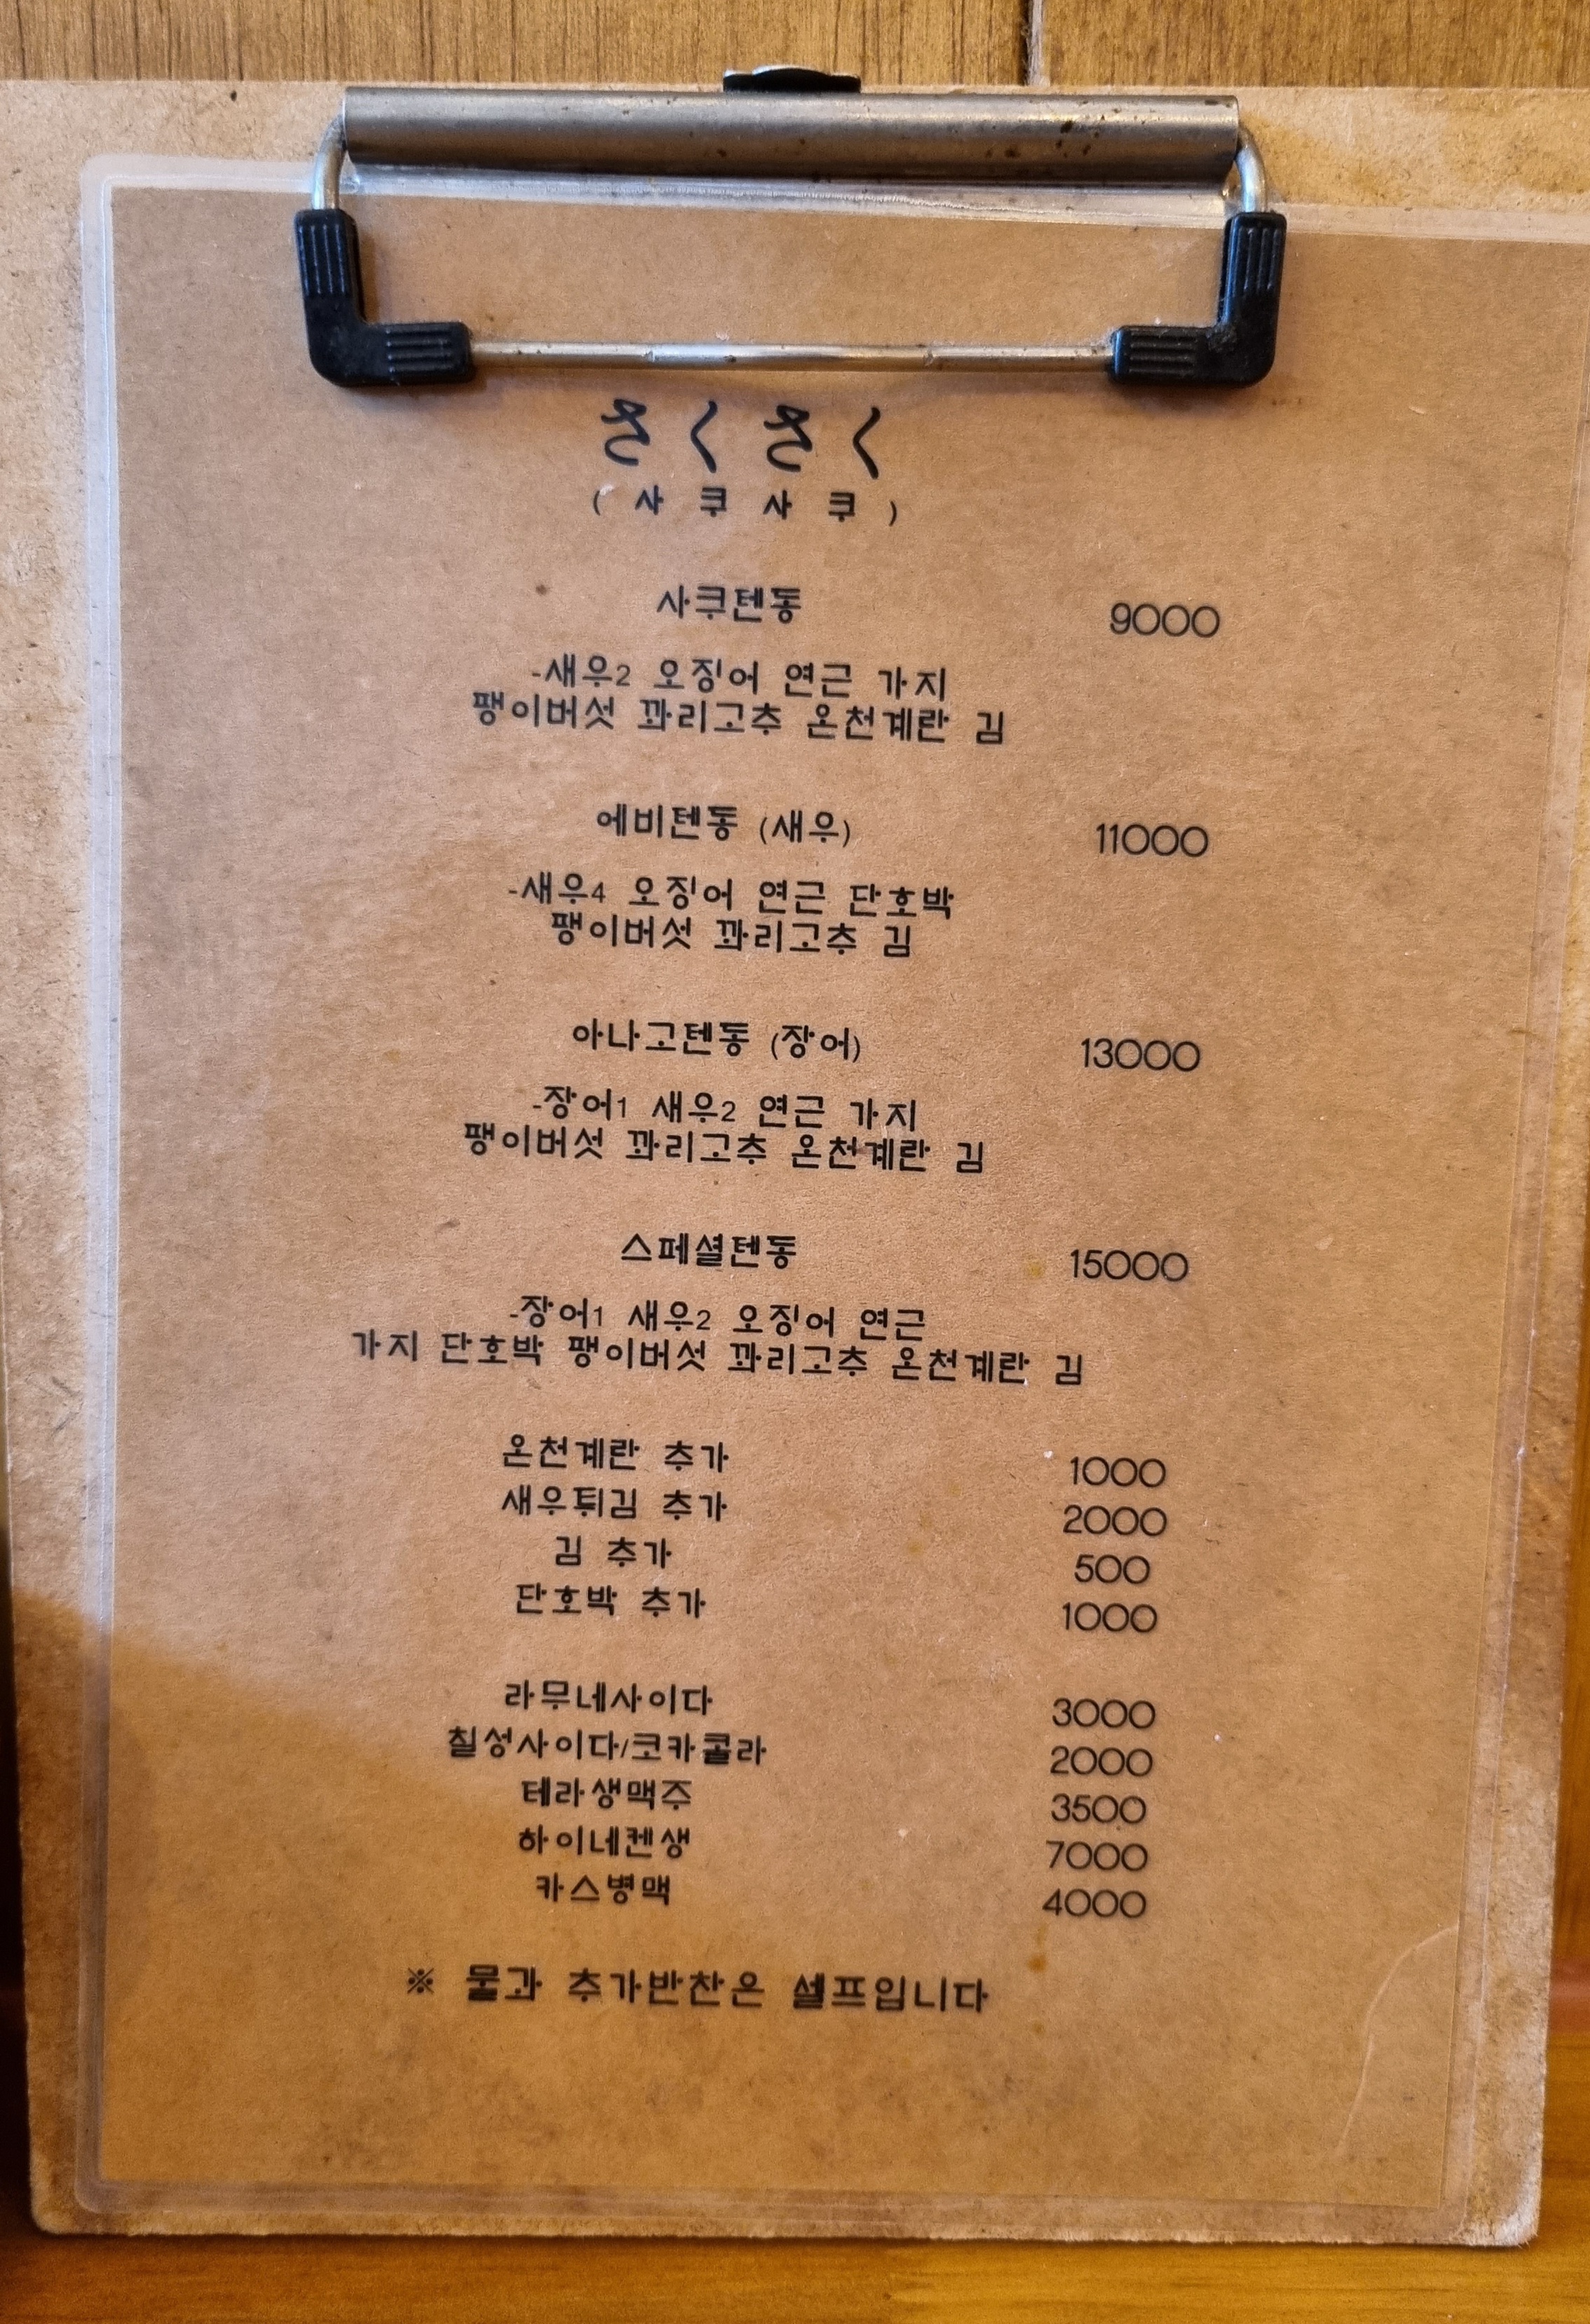 さくさく
(사쿠사쿠)
사쿠텐동 9000
-새우2 오징어 연근 가지
팽이버섯 꽈리고추 온천계란 김
에비텐동 (새우) 11000
-새우4 오징어 연근 단호박
팽이버섯 꽈리고추 김
아나고텐동 (장어) 13000
-장어1 새우2 연근 가지
팽이버섯 꽈리고추 온천계란 김
스페셜텐동 15000
-장어1 새우2 오징어 연근
가지 단호박 팽이버섯 꽈리고추 온천계란 김
온천계란 추가 1000
새우튀김 추가 2000
김 추가 500
단호박 추가 1000
라무네사이다 3000
칠성사이다/코카콜라 2000
테라생맥주 3500
하이네켄생 7000
카스병맥 4000
※ 물과 추가반찬은 셀프입니다